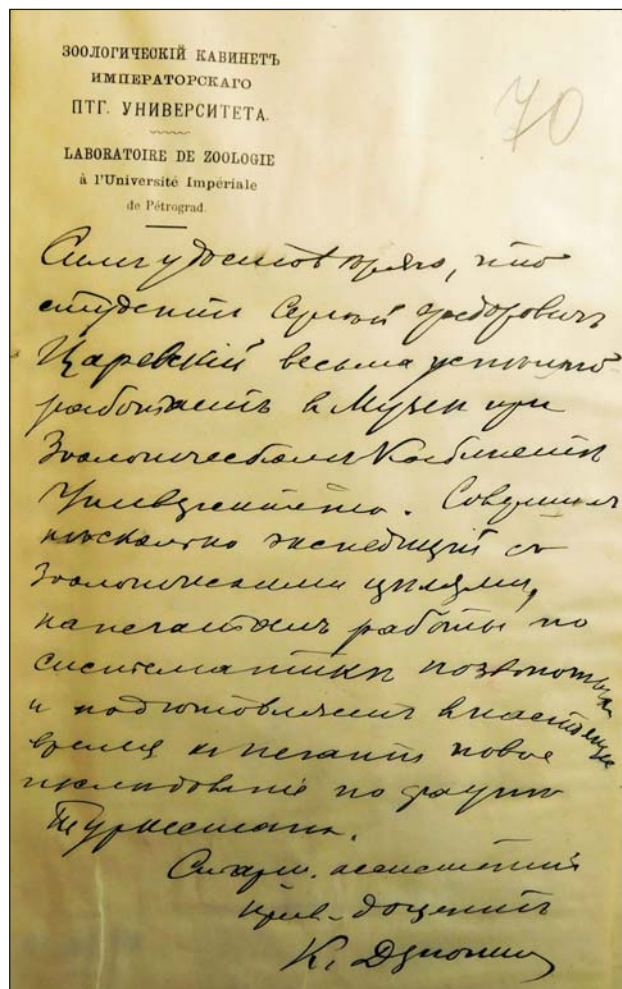 ЗООЛОГИЧЕСКІЙ КАБИНЕТЪ
ИМПЕРАТОРСКАГО
ПТГ. УНИВЕРСИТЕТА.
LABORATOIRE DE ZOOLOGIE
à l'Université Impériale
de Pétrograd.
70
Симъ удостовѣряю, что
студентъ Сергѣй Федоровичъ
Царевскій весьма успѣшно
работаетъ в Музеѣ при
Зоологическомъ Кабинетѣ
Университета. Совершилъ
нѣсколько экспедицій съ
зоологическими цѣлями,
напечаталъ работы по
систематикѣ позвоночныхъ
и подготовляетъ в настоящее
время к печати новое
изслѣдованіе по фаунѣ
Туркестана.
Старш. ассистентъ
прив-доцентъ
К. Дерюгин